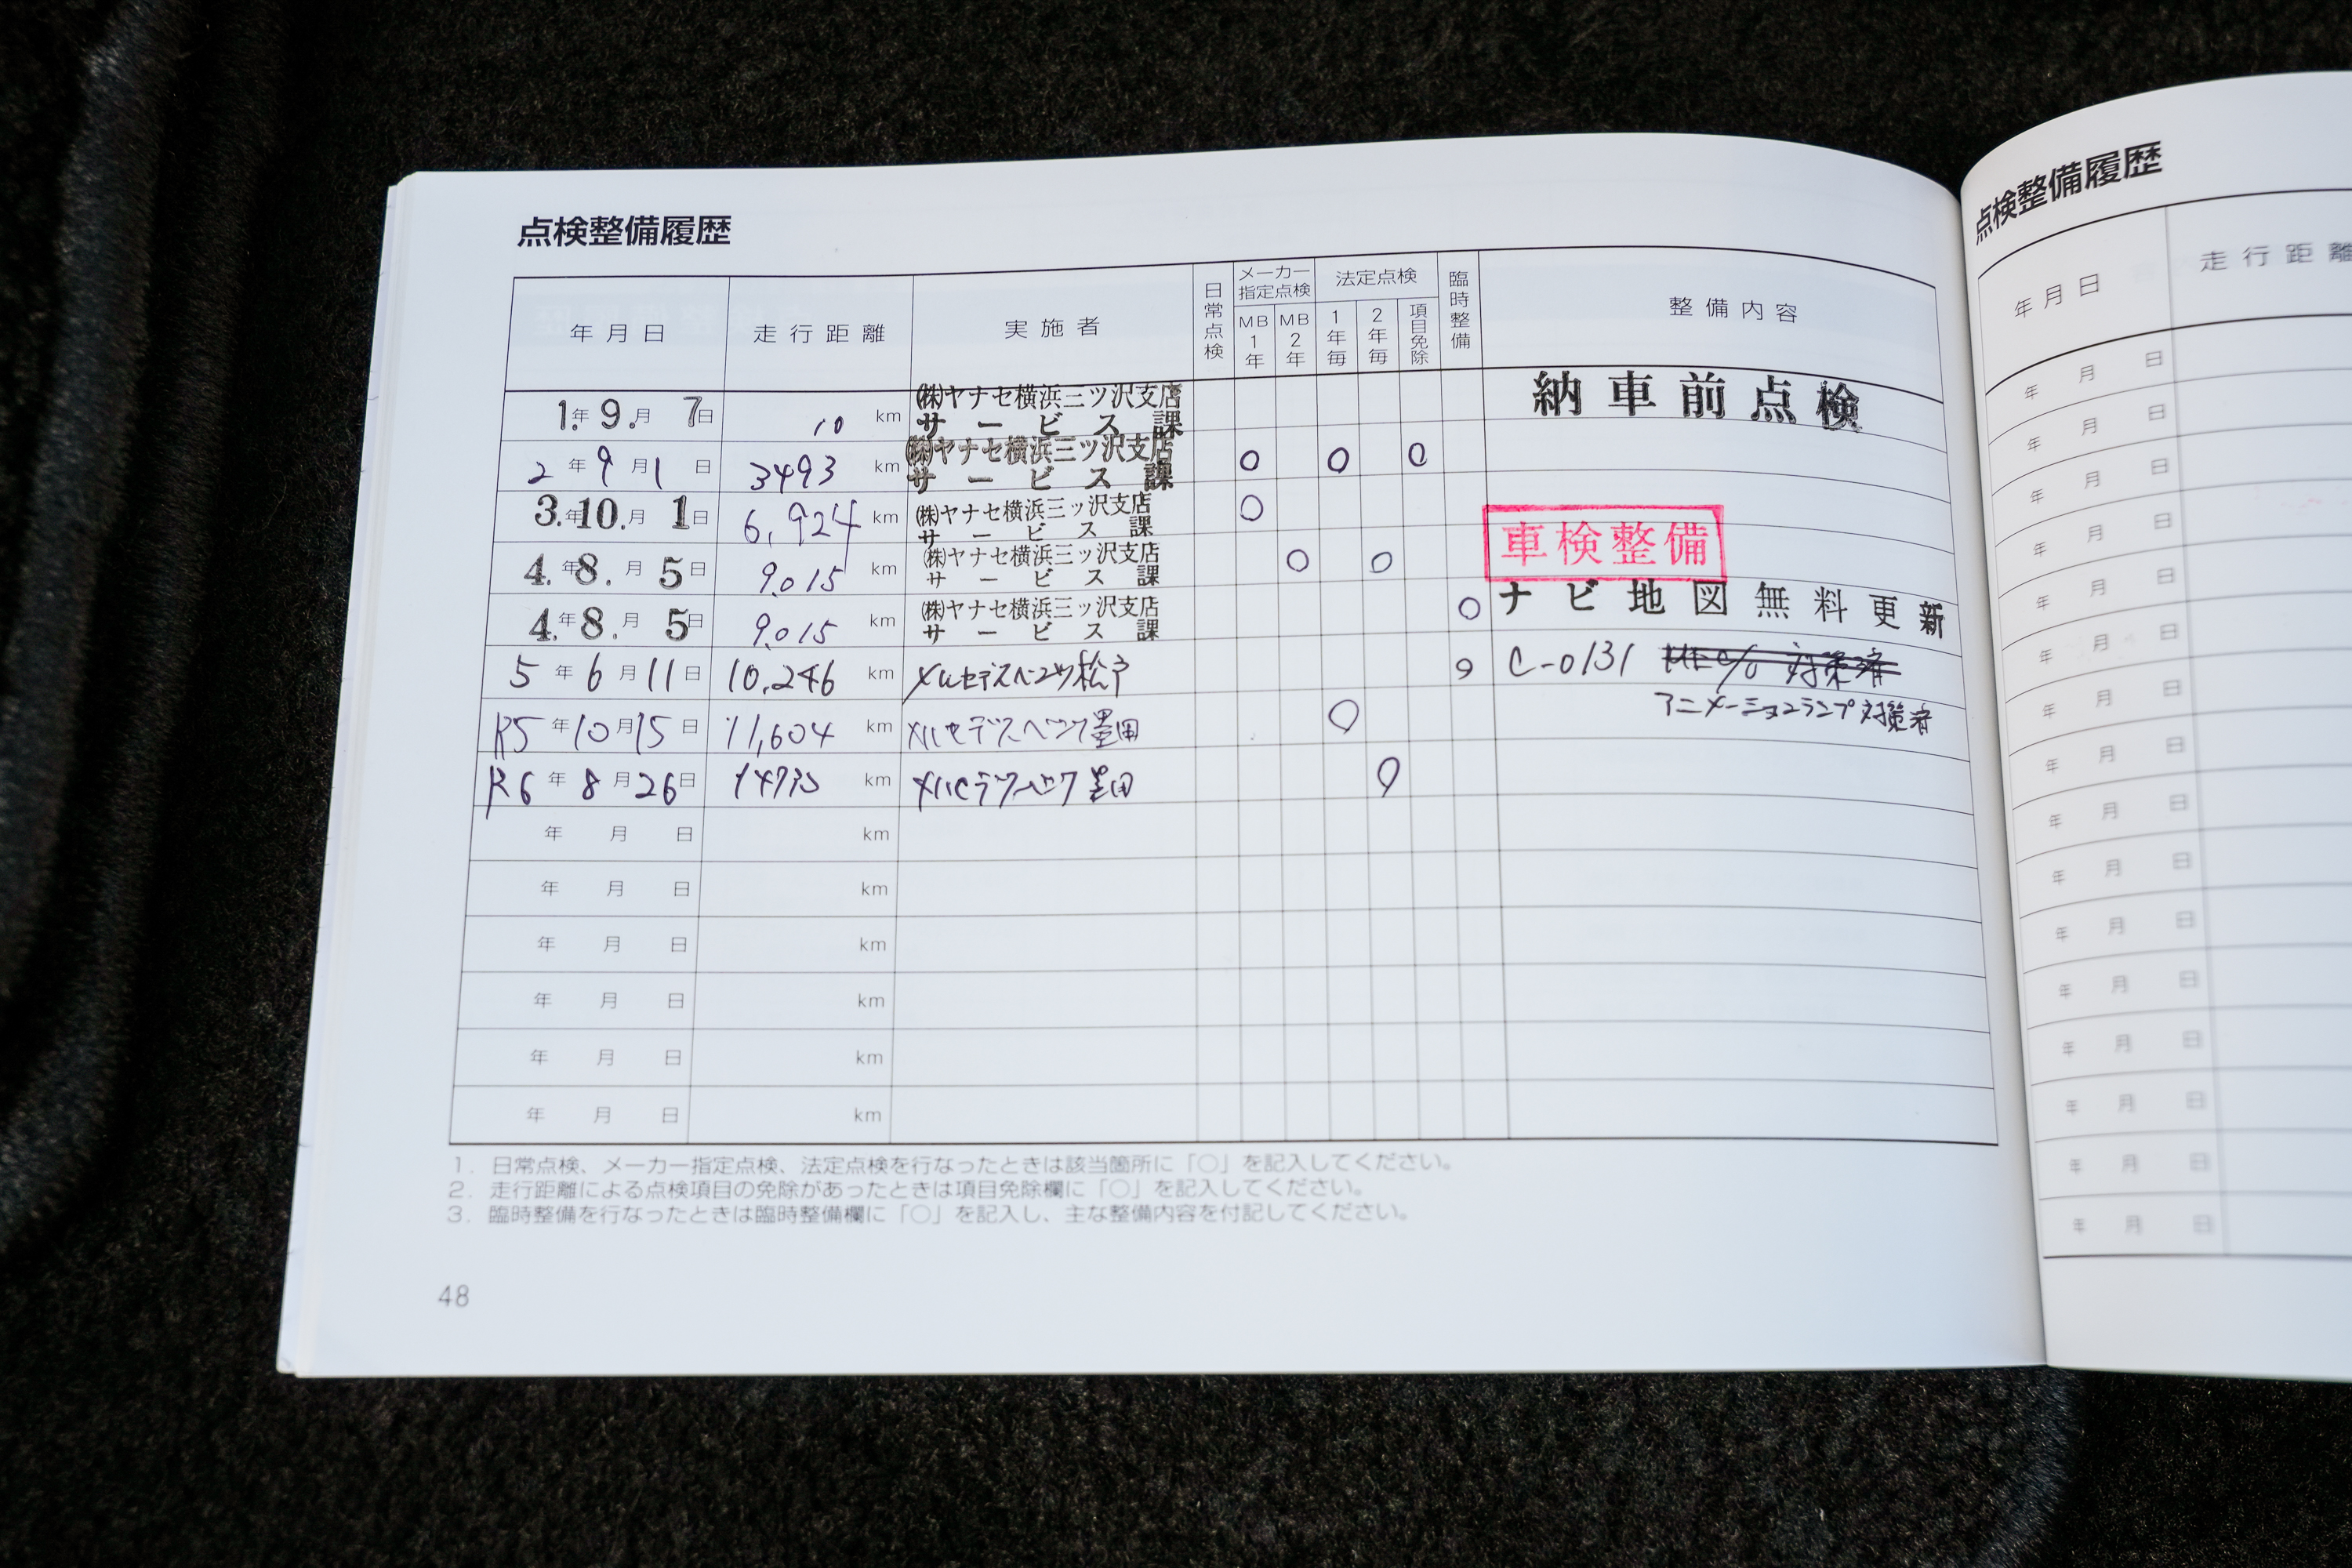 点検整備履歴
年月日 走行距離 実施者 日常点検 メーカー指定点検 MB1年 MB2年 法定点検 1年毎 2年毎 項目免除 臨時整備 整備内容
1.年9.月7日 10 km ㈱ヤナセ横浜三ツ沢支店 納車前点検
サービス課
2年9月1日 3493 km ㈱ヤナセ横浜三ツ沢支店 ○ ○ ○
サービス課
3.年10.月1日 6,924 km ㈱ヤナセ横浜三ツ沢支店 ○
サービス課
車検整備
4.年8.月5日 9,015 km ㈱ヤナセ横浜三ツ沢支店 ○ ○
サービス課
4.年8.月5日 9,015 km ㈱ヤナセ横浜三ツ沢支店 ○ ナビ地図無料更新
サービス課
5年6月11日 10,246 km メルセデスベンツ松戸 ○ C-0131 対策済
アニメーションランプ対策済
R5年10月15日 11,604 km メルセデスベンツ墨田 ○
R6年8月26日 km メルセデスベンツ墨田 ○
年 月 日 km
年 月 日 km
年 月 日 km
年 月 日 km
年 月 日 km
年 月 日 km
1. 日常点検、メーカー指定点検、法定点検を行なったときは該当箇所に「○」を記入してください。
2. 走行距離による点検項目の免除があったときは項目免除欄に「○」を記入してください。
3. 臨時整備を行なったときは臨時整備欄に「○」を記入し、主な整備内容を付記してください。
48
点検整備履歴
年月日 走行距離
年 月 日
年 月 日
年 月 日
年 月 日
年 月 日
年 月 日
年 月 日
年 月 日
年 月 日
年 月 日
年 月 日
年 月 日
年 月 日
年 月 日
年 月 日
年 月 日